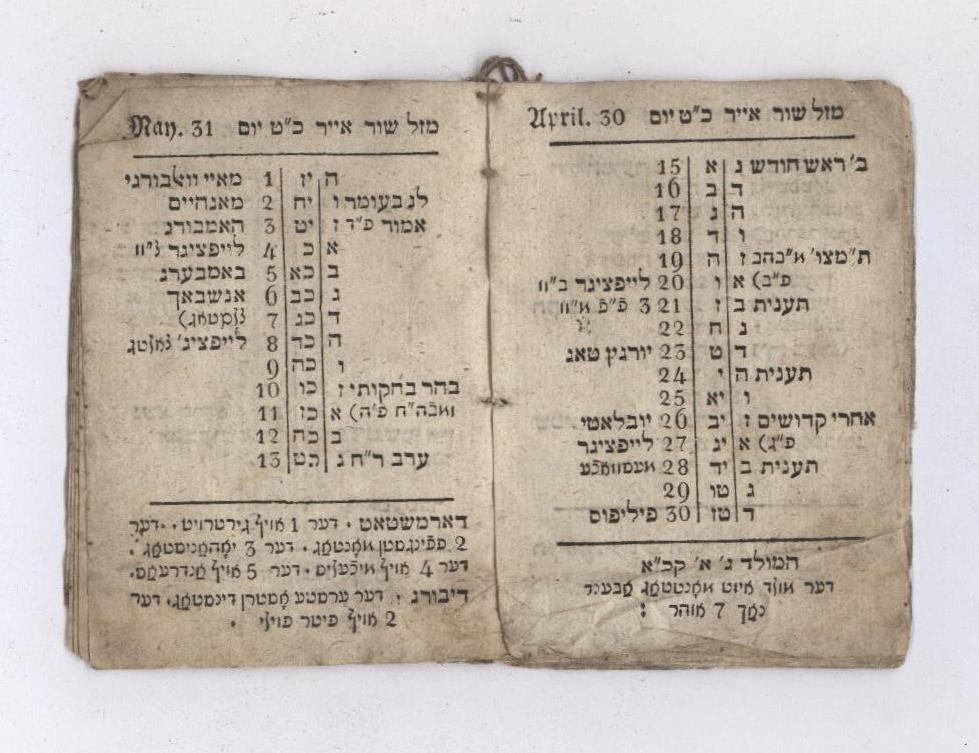 מזל שור אייר כ״ט יום April. 30
ב׳ ראש חודש ג א 15
ד ב 16
ה ג 17
ו ד 18
ז ה 19
פ״ב) א ו 20 לייפציגר
תענית ב ז 21
ג ח 22
ד ט 23 יורגין טאג
תענית ה י 24
ו יא 25
אחרי קדושים ז יב 26 יובלאטי
פ״ג) א יג 27 לייפציגר
תענית ב יד 28
ג טו 29
ד טז 30 פיליפוס
המולד ג׳ א׳ קכ״א
דער מולד איזט מאָנטטאַג אַבענד
נאָך 7 אוהר :
מזל שור אייר כ״ט יום May. 31
ה יז 1 מאיי וואלבורגי
לג בעומר ו יח 2 מאנהיים
אמור פ״ד ז יט 3 האמבורג
א כ 4 לייפציגר
ב כא 5 באמבערג
ג כב 6 אנשבאך
ד כג 7
ה כד 8 לייפציג׳
ו כה 9
בהר בחקותי ז כו 10
פ״ה) א כז 11
ב כח 12
ערב ר״ח ג כט 13
דארמשטאט . דער 1 אויף גירטרויט . דער
2 פפֿינגסטן מאָנטאַג . דער 3 יאָהאַניסטאַג .
דער 4 אויף מיכֿעליס . דער 5 אויף אַנדרעאַס .
דיבורג . דער ערסטע אָסטרן דינסטאַג . דער
2 אויף פיטר פויל׳ .